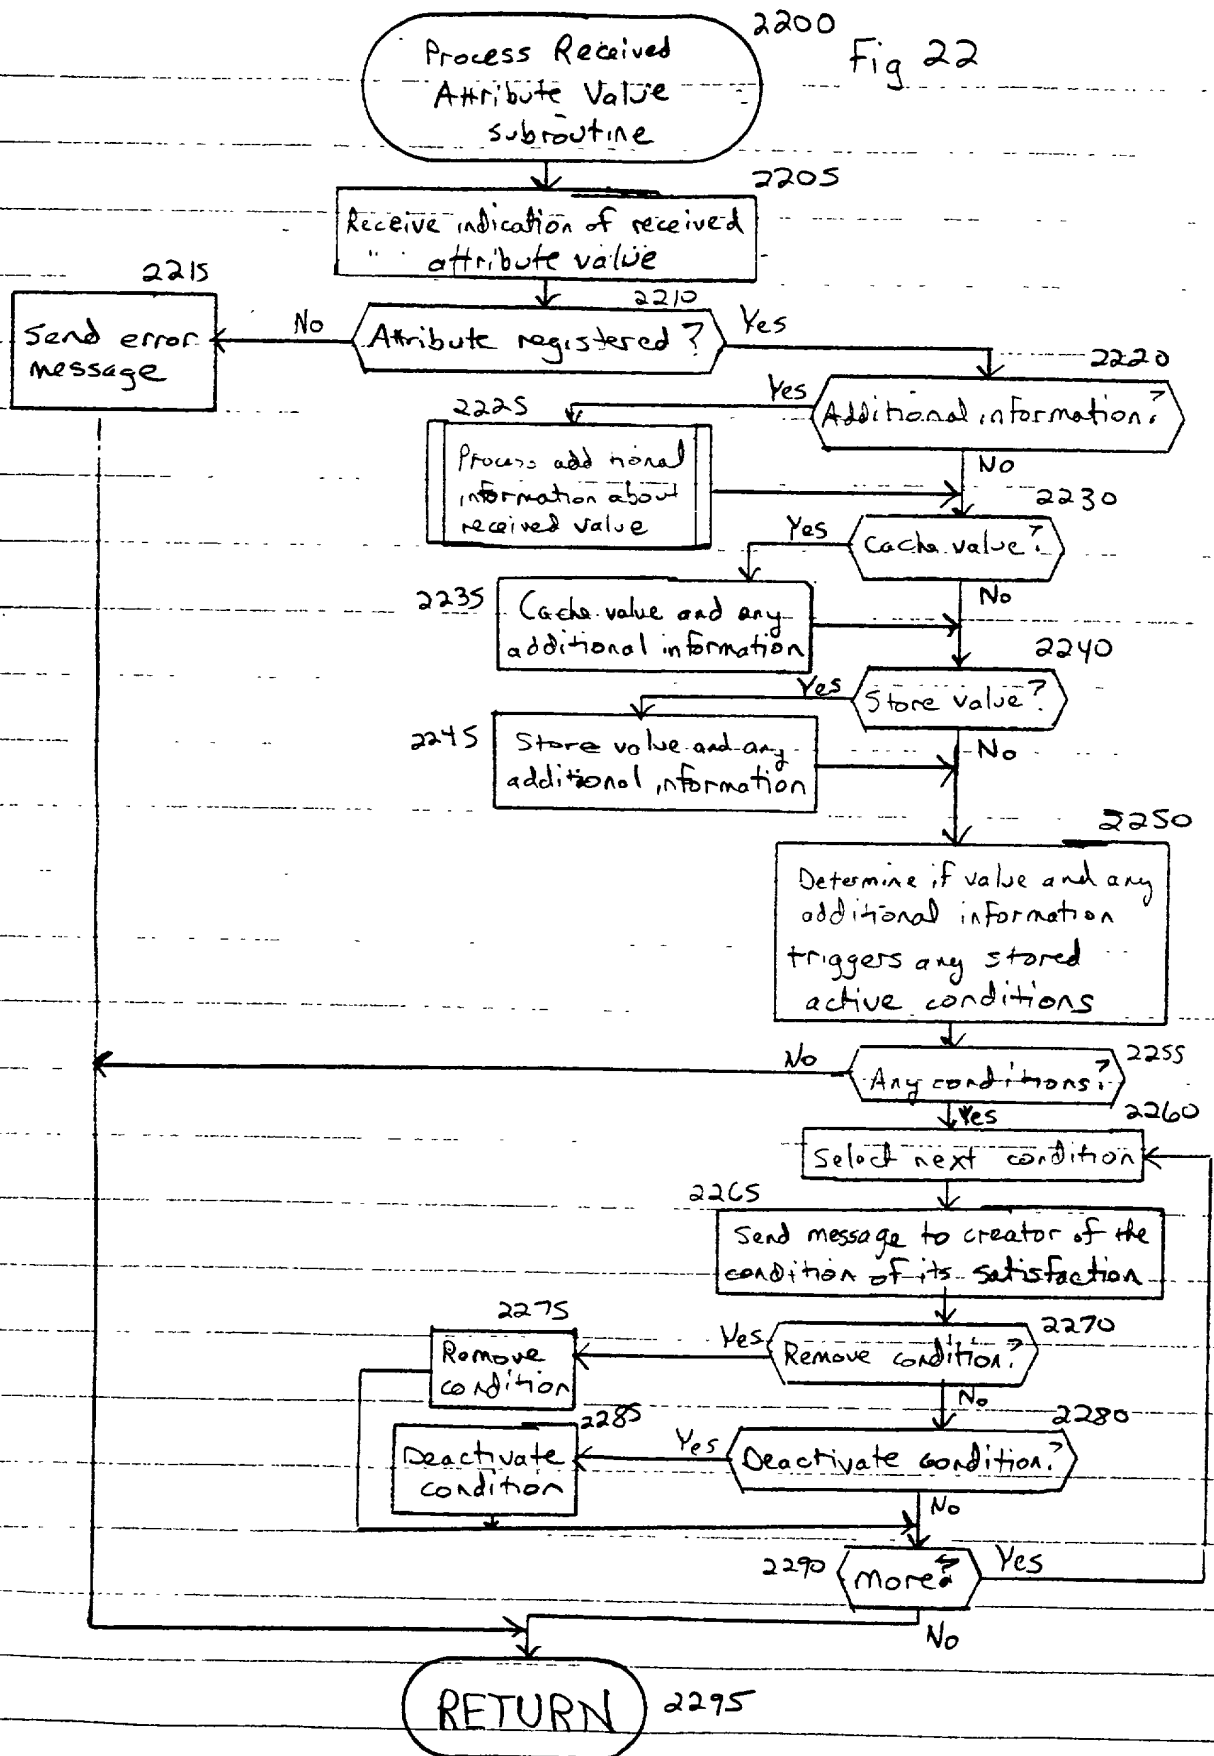 2200
Fig 22
Process Received
Attribute Value
subroutine
2205
Receive indication of received
attribute value
2215
2210
Send error
message
No
Attribute registered?
Yes
2220
Yes
Additional information?
2225
Process additional
information about
received value
No
2230
Yes
Cache value?
2235
Cache value and any
additional information
No
2240
Yes
Store value?
2245
Store value and any
additional information
No
2250
Determine if value and any
additional information
triggers any stored
active conditions
No
Any conditions?
2255
Yes
2260
Select next condition
2265
Send message to creator of the
condition of its satisfaction
2275
2270
Remove
condition
Yes
Remove condition?
No
2285
2280
Deactivate
condition
Yes
Deactivate condition?
No
2290
More?
Yes
No
RETURN
2295